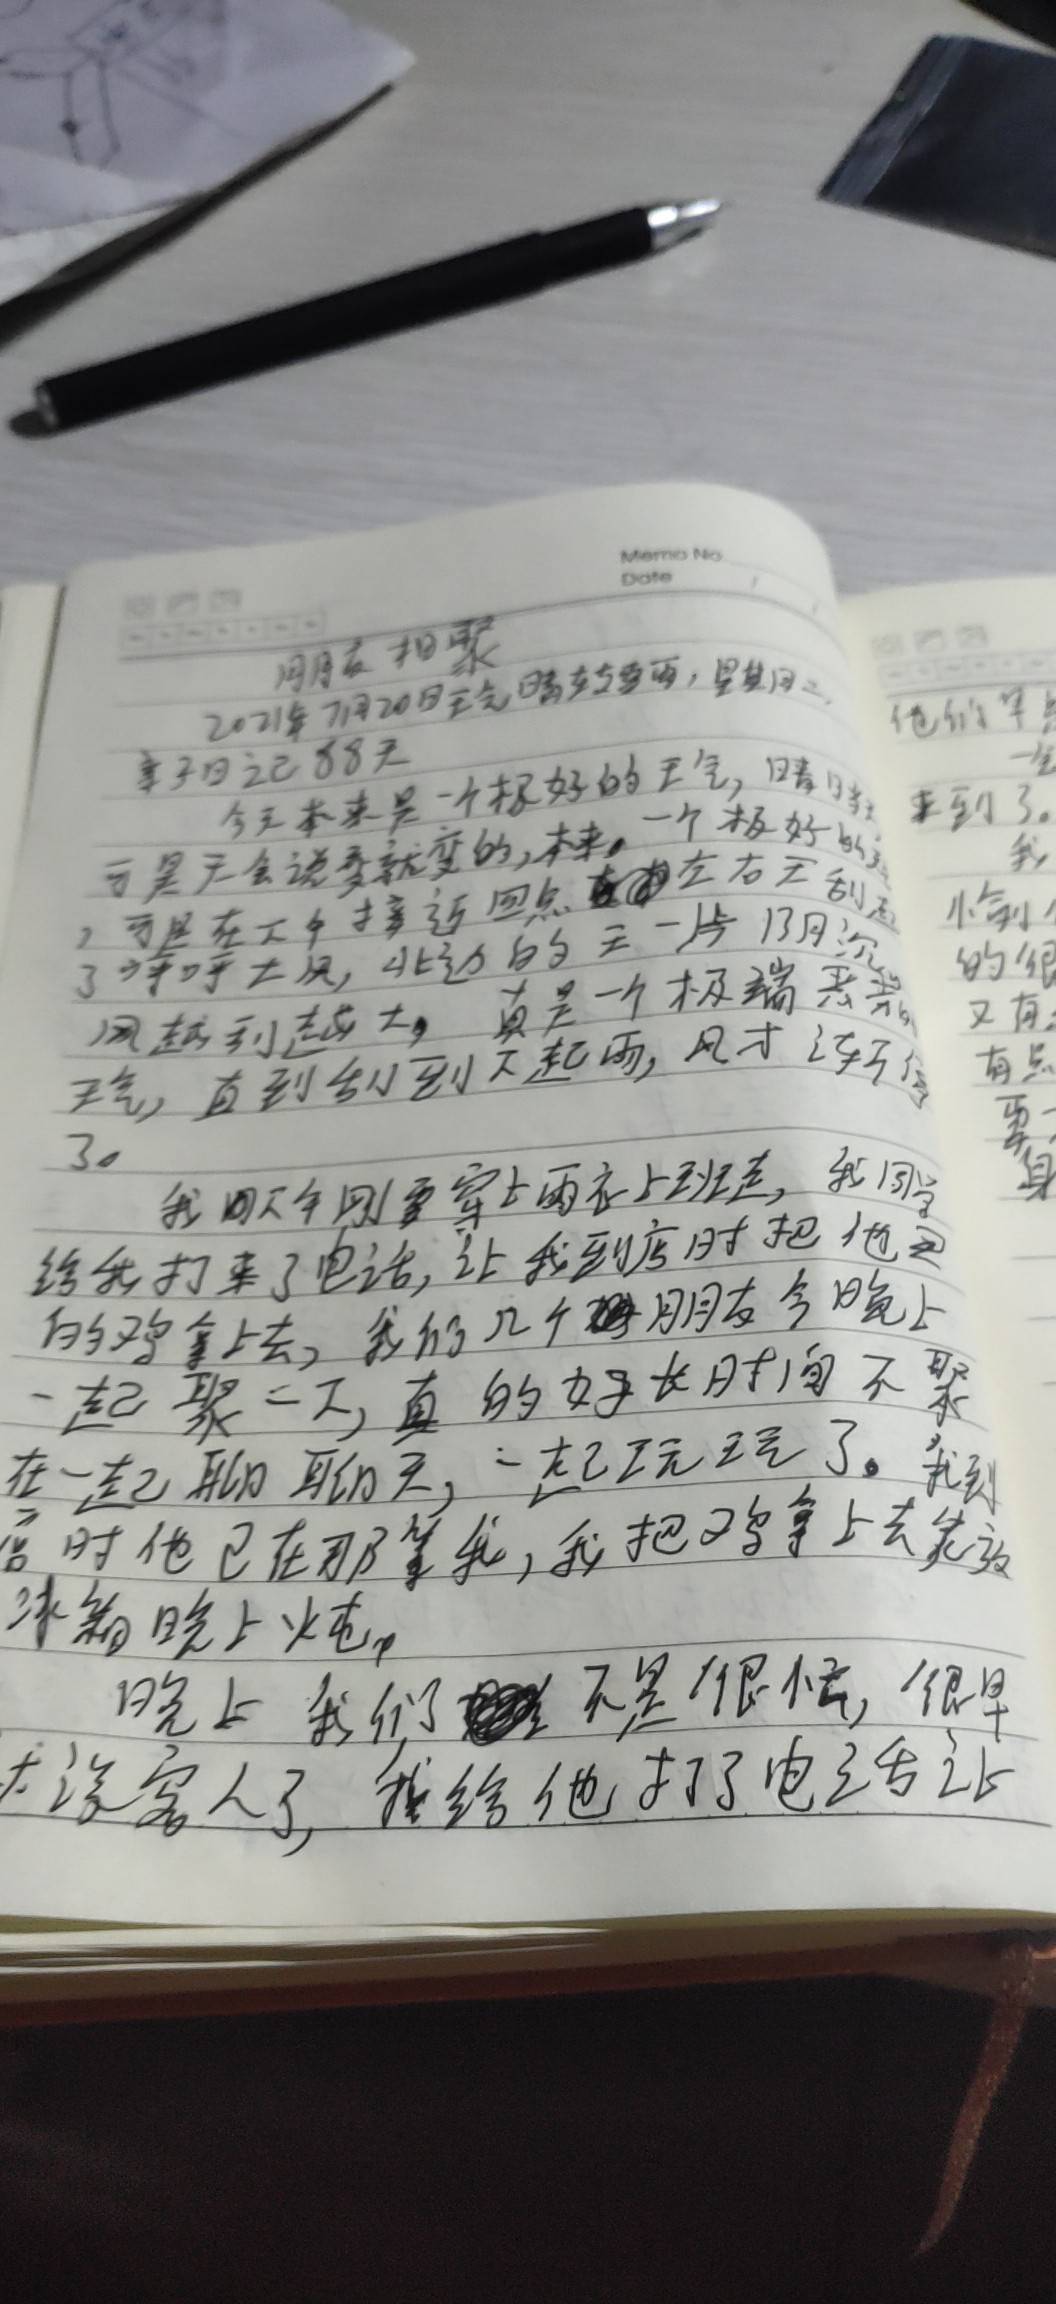 Memo No
Date
朋友相聚
2021年7月20日天气晴转雷雨，星期二，
亲子日记88天
今天本来是一个极好的天气，晴
可是天会说变就变的，本来。一个极好的
，可是在下午接近四点左右天刮起
了呼呼大风，北边的天一片阴沉
风越刮越大，真是一个极端恶劣的
天气，直到刮到下起雨，风才
了。
我下午刚要穿上雨衣上班走，我同学
给我打来了电话，让我到店时把他
的鸡拿上去，我们几个朋友今晚上
一起聚一下，真的好长时间不聚
在一起聊聊天，一起玩玩了。我到
店时他已在那等我，我把鸡拿上去放
冰箱晚上炖，
晚上我们不是很忙，很早
没客人了，我给他打了电话让
他们早点
来到了。
我
的很
又有
有点
要
身